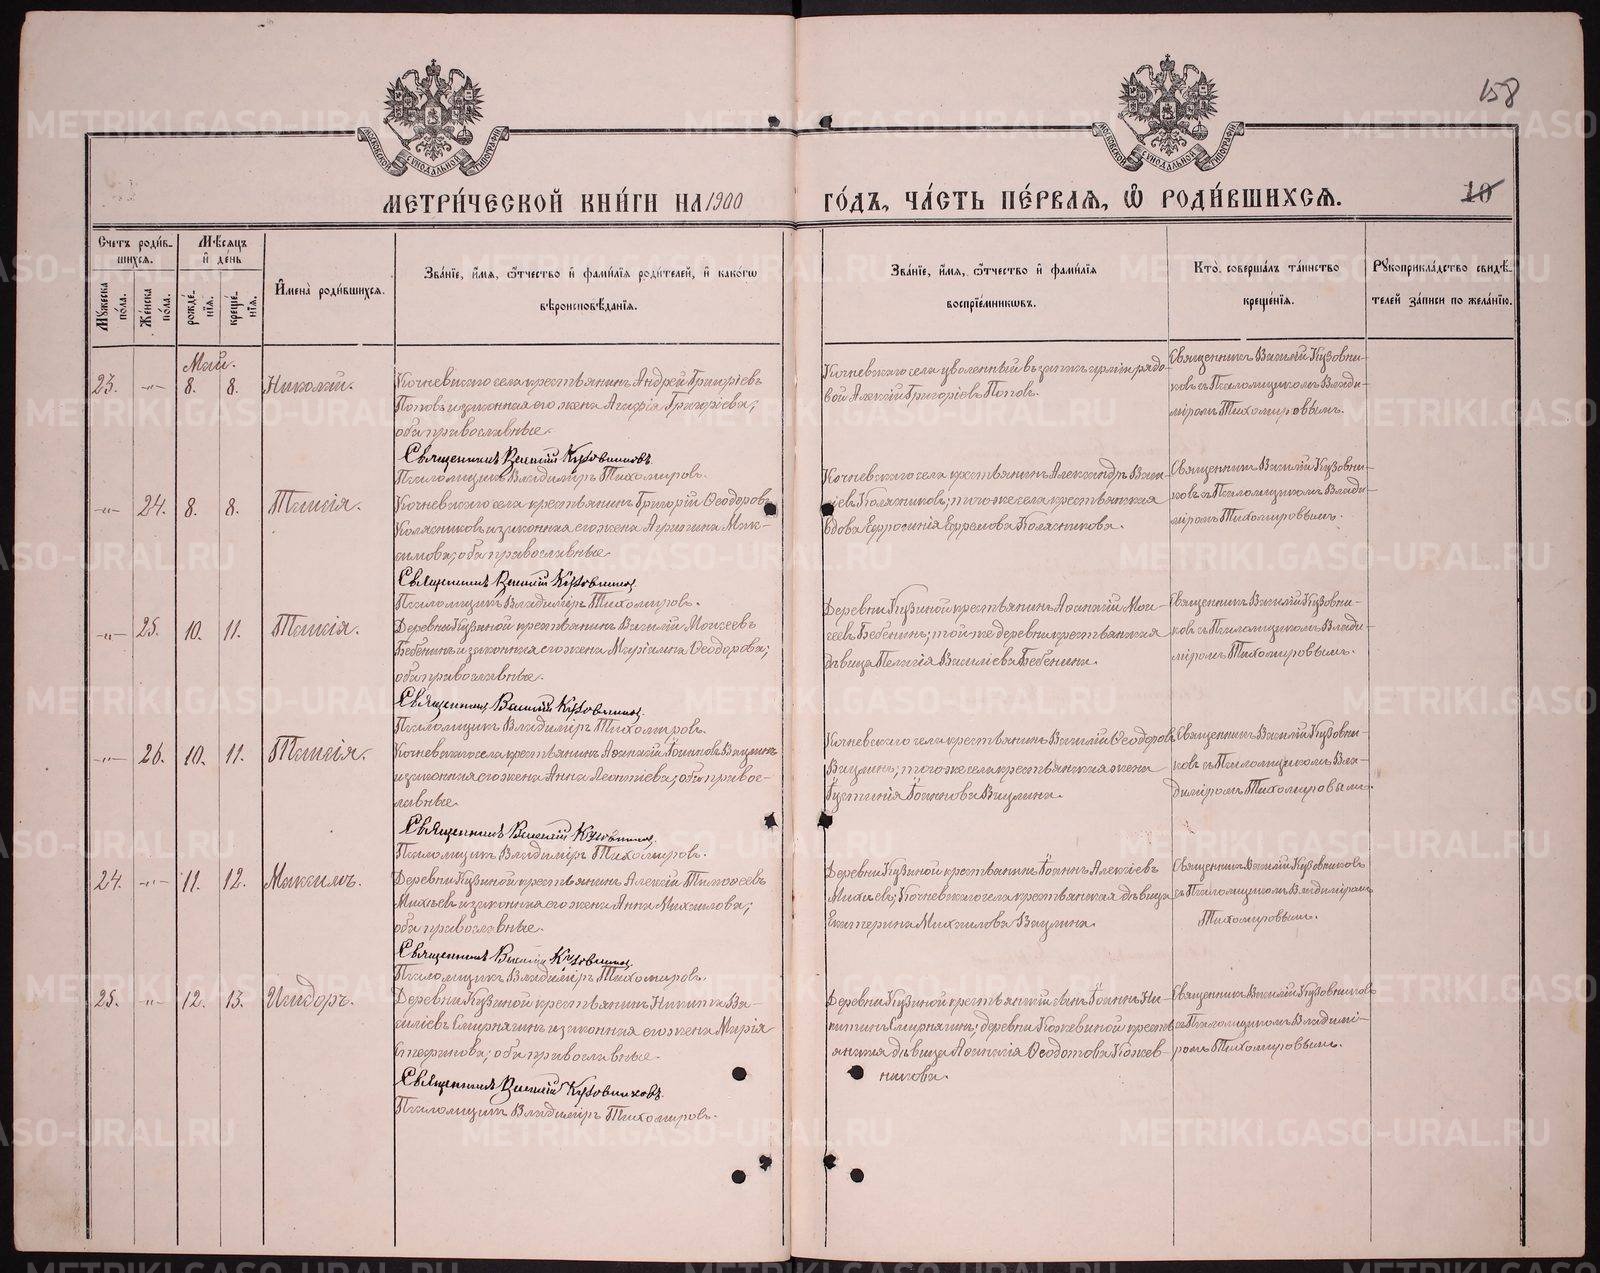 158
МОСКОВСКОЙ СУНОДАЛЬНОЙ ТИПОГРАФІИ
МОСКОВСКОЙ СУНОДАЛЬНОЙ ТИПОГРАФІИ
МЕТРИ́ЧЕСКОЙ КНИ́ГИ НА 1900 ГО́ДЪ, ЧА́СТЬ ПЕ́РВАЯ, Ѽ РОДИ́ВШИХСЯ.
10
Счетъ роди́в-
шихся.
Мѣсяцъ
и҆ де́нь
Му́жеска
по́ла.
Же́нска
по́ла.
рожде́-
нія.
креще́-
нія.
И҆мена̀ роди́вшихся.
Зва́ніе, и҆́мя, ѻ҆́тчество и҆ фами́лія роди́телей, и҆ како́гѡ
вѣроисповѣ́данія.
Зва́ніе, и҆́мя, ѻ҆́тчество и҆ фами́лія
воспріе́мникѡвъ.
Кто̀ соверша́лъ та́инство
креще́нія.
Рꙋкоприкла́дство свидѣ́-
телей за́писи по жела́нію.
Май.
23. -"- 8. 8. Николай.
Кочневскаго села крестьянинъ Андрей Григоріевъ
Поповъ и законная его жена Агафія Григоріева;
оба православные.
Священникъ Василій Кузовниковъ
Псаломщикъ Владиміръ Тихомировъ.
Кочневскаго села уволенный въ запасъ арміи рядо-
вой Алексій Григоріевъ Поповъ.
Священникъ Василій Кузовни-
ковъ съ Псаломщикомъ Влади-
міромъ Тихомировымъ.
-"- 24. 8. 8. Таисія.
Кочневскаго села крестьянинъ Григорій Ѳеодоровъ
Колясниковъ и законная его жена Агрипина Мак-
симова; оба православные
Священникъ Василій Кузовников
Псаломщикъ Владиміръ Тихомировъ.
Кочневскаго села крестьянинъ Александръ Васи-
ліевъ Колясниковъ; того же села крестьянская
вдова Ефросинія Ефремова Колясникова.
Священникъ Василій Кузовни-
ковъ съ Псаломщикомъ Влади-
міромъ Тихомировымъ.
-"- 25. 10. 11. Таисія.
Деревни Кузиной крестьянинъ Василій Моисеевъ
Бебенинъ и законная его жена Маріамна Ѳеодорова;
оба православные.
Священникъ Василій Кузовников
Псаломщикъ Владиміръ Тихомировъ.
Деревни Кузиной крестьянинъ Аѳанасій Мои-
сеевъ Бебенинъ; той же деревни крестьянская
дѣвица Пелагія Василіева Бебенина.
Священникъ Василій Кузовни-
ковъ съ Псаломщикомъ Влади-
міромъ Тихомировымъ.
-"- 26. 10. 11. Таисія.
Кочневскаго села крестьянинъ Аѳанасій Іоанновъ Вацлинъ
и законная его жена Анна Леонтіева; оба правос-
лавные.
Священникъ Василій Кузовников
Псаломщикъ Владиміръ Тихомировъ.
Кочневскаго села крестьянинъ Василій Ѳеодоровъ
Вацлинъ; того же села крестьянская жена
Іустинія Іоаннова Вацлина.
Священникъ Василій Кузовни-
ковъ съ Псаломщикомъ Вла-
диміромъ Тихомировымъ.
24. -"- 11. 12. Максимъ.
Деревни Кузиной крестьянинъ Алексій Тимоѳеевъ
Михѣевъ и законная его жена Анна Михаилова;
оба православные.
Священникъ Василій Кузовников
Псаломщикъ Владиміръ Тихомировъ.
Деревни Кузиной крестьянинъ Іоаннъ Алексіевъ
Михѣевъ; Кочневскаго села крестьянская дѣвица
Екатерина Михаилова Вацлина.
Священникъ Василій Кузовниковъ
съ Псаломщикомъ Владиміромъ
Тихомировымъ.
25. -"- 12. 13. Исидоръ.
Деревни Кузиной крестьянинъ Никита Ва-
силіевъ Смирнягинъ и законная его жена Марія
Стефанова; оба православные.
Священникъ Василій Кузовниковъ
Псаломщикъ Владиміръ Тихомировъ.
Деревни Кузиной крестьянскій сынъ Іоаннъ Ни-
китинъ Смирнягинъ; деревни Кожевиной кресть-
янская дѣвица Аѳанасія Ѳеодотова Кожев-
никова.
Священникъ Василій Кузовниковъ
съ Псаломщикомъ Владимі-
ромъ Тихомировымъ.
METRIKI.GASO-URAL.RU